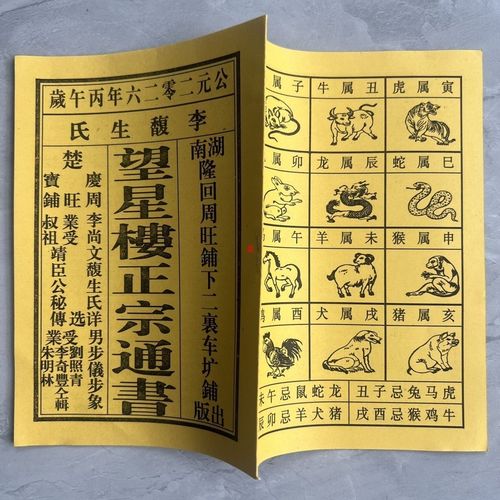 公元二零二六年丙午歲
李馥生氏
湖南隆回周旺鋪下二裏车扩鋪出版
望星樓正宗通書
楚
慶周李尚文馥生氏洋男步儀步象
旺業受选受劉照青
李奇豐仝輯
寶鋪叔祖靖臣公秘傳業朱明林
属子 牛属丑 虎属寅
属卯 龙属辰 蛇属巳
属午 羊属未 猴属申
鸡属酉 犬属戌 猪属亥
未午忌鼠蛇龙 丑子忌兔马虎
辰卯忌羊犬猪 戌酉忌猴鸡牛